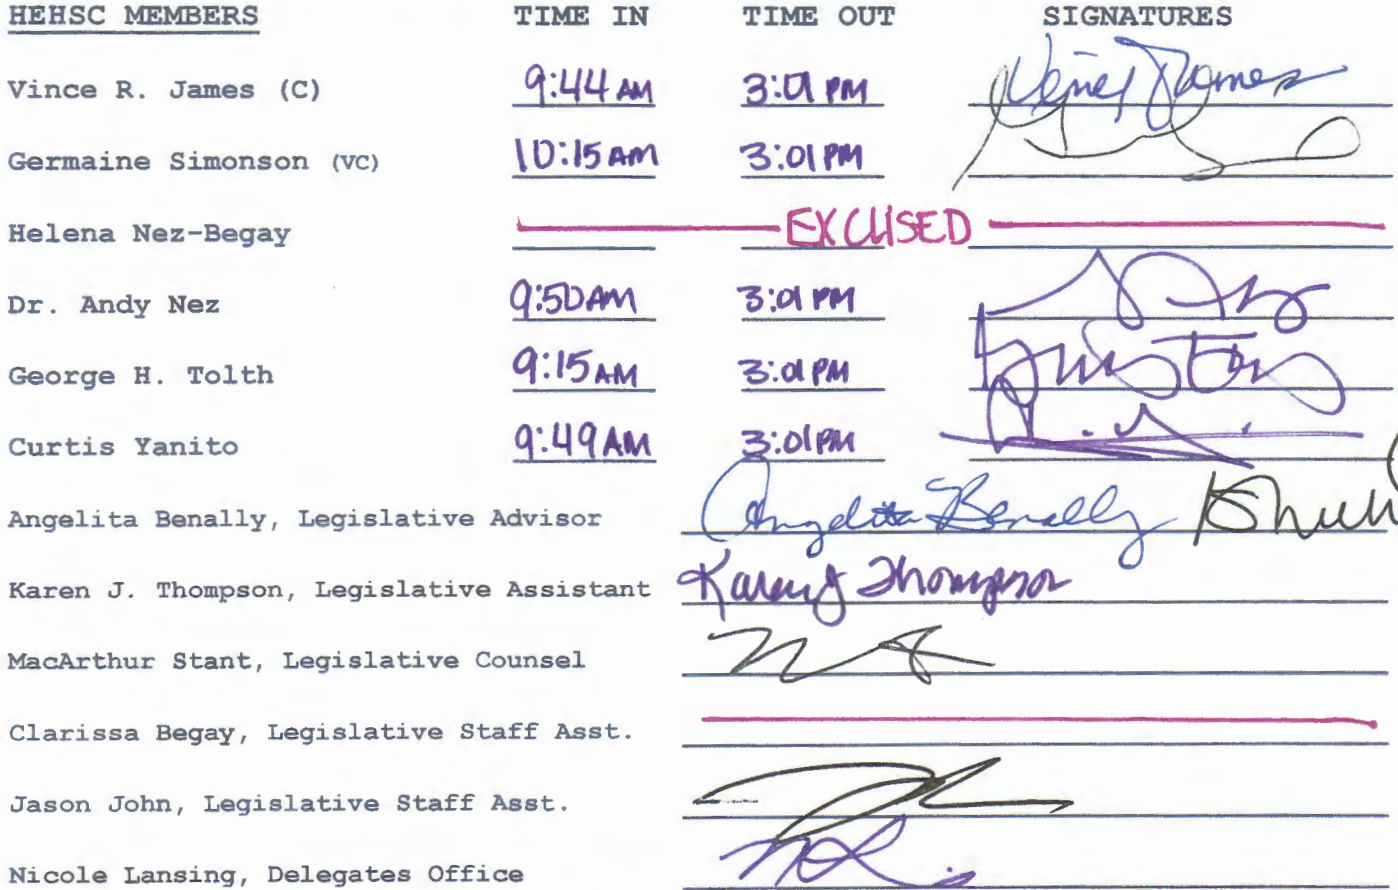 HEHSC MEMBERS TIME IN TIME OUT SIGNATURES
Vince R. James (C) 9:44 AM 3:01 PM
Germaine Simonson (VC) 10:15 AM 3:01 PM
Helena Nez-Begay EXCUSED
Dr. Andy Nez 9:50 AM 3:01 PM
George H. Tolth 9:15 AM 3:01 PM
Curtis Yanito 9:49 AM 3:01 PM
Angelita Benally, Legislative Advisor Angelita Benally
Karen J. Thompson, Legislative Assistant Karen J Thompson
MacArthur Stant, Legislative Counsel
Clarissa Begay, Legislative Staff Asst.
Jason John, Legislative Staff Asst.
Nicole Lansing, Delegates Office